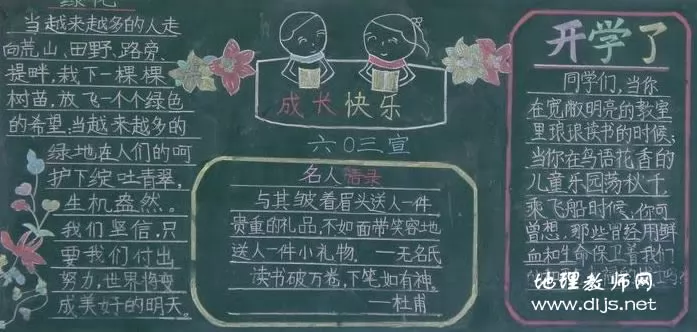 绿化
当越来越多的人走
向荒山、田野、路旁、
提畔，栽下一棵棵
树苗，放飞一个个绿色
的希望；当越来越多的
绿地在人们的呵
护下绽吐青翠，
生机盎然。
我们坚信，只
要我们付出
努力，世界将变
成美好的明天。
成长快乐
六0三宣
名人语录
与其皱着眉头送人一件
贵重的礼品，不如面带笑容地
送人一件小礼物。——无名氏
读书破万卷，下笔如有神。
——杜甫
开学了
同学们，当你
在宽敞明亮的教室
里琅琅读书的时候；
当你在鸟语花香的
儿童乐园荡秋千，
乘飞船时候，你可
曾想，那些曾经用鲜
血和生命保卫着我们
地理教师网
www.dljs.net